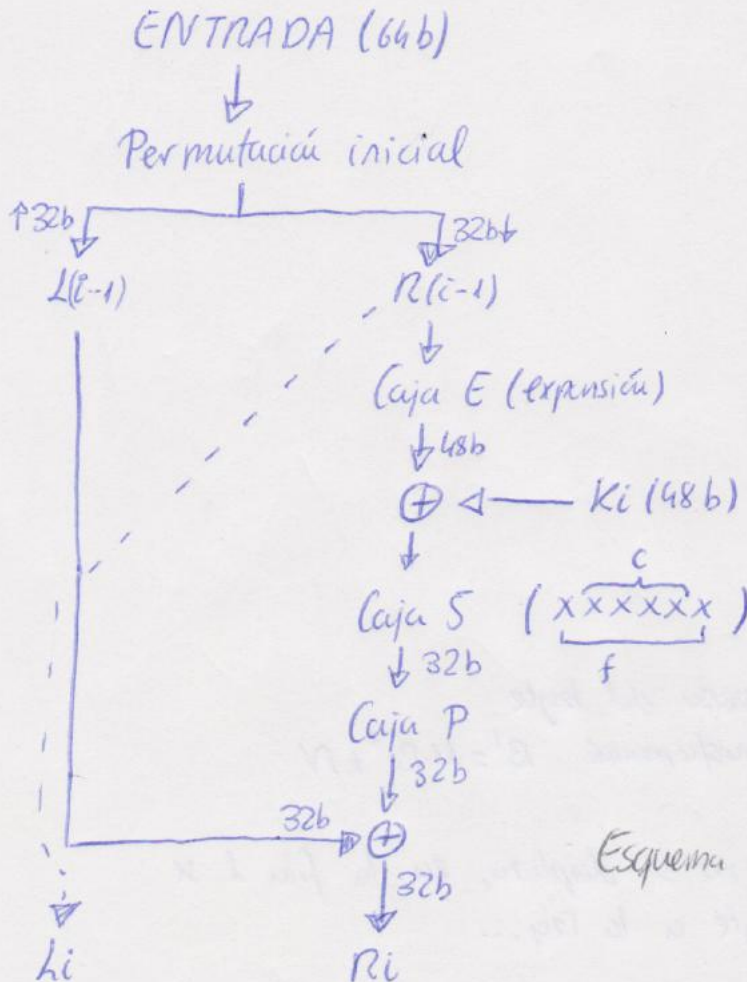 ENTRADA (64b)
Permutación inicial
↑32b 32b↓
L(i-1) R(i-1)
Caja E (expansión)
48b
⊕ Ki (48b)
c
Caja S (xxxxxx)
f
32b
Caja P
32b
32b ⊕
Esquema
32b
Li Ri